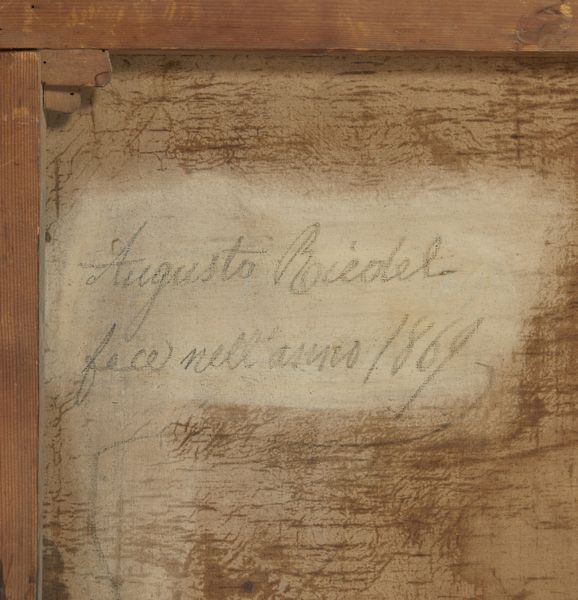 Augusto Riedel
fece nell'anno 1869